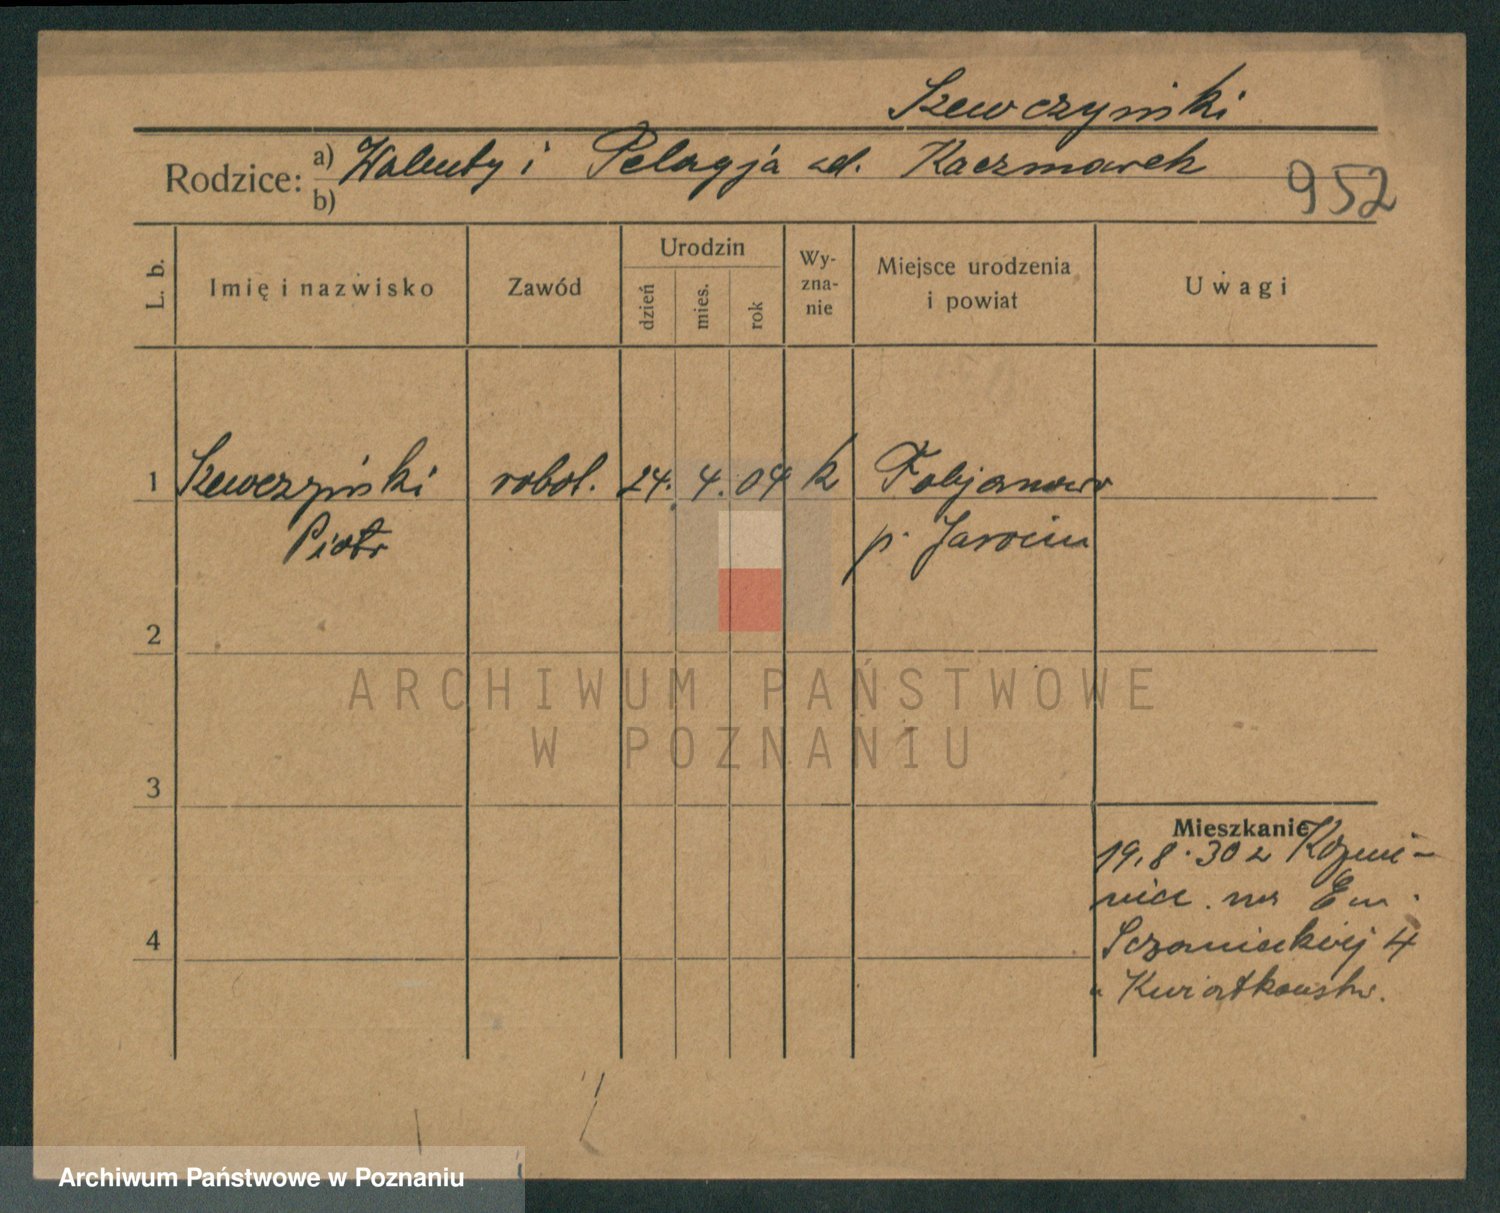 Szewczyński
Rodzice: a) Walenty i Pelagja zd. Kaczmarek
b)
952
L. b.
Imię i nazwisko
Zawód
Urodzin
dzień
mies.
rok
Wy-
zna-
nie
Miejsce urodzenia
i powiat
Uwagi
1 Szewczyński robot. 24. 4. 04 k Fabjanowo
Piotr p. Jarocin
2
ARCHIWUM PAŃSTWOWE
W POZNANIU
3
Mieszkanie
19.8.30 z
na Em.
Sczanieckiej 4
u Kwiatkowsk.
4
Archiwum Państwowe w Poznaniu